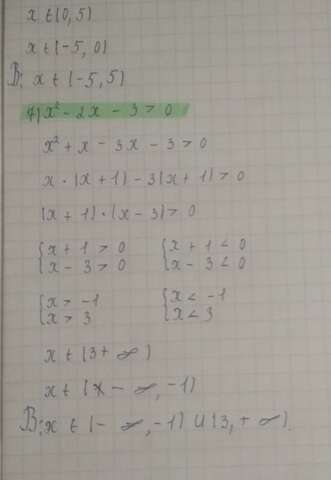 x ∈ (0, 5)
x ∈ (-5, 0)
В: x ∈ (-5, 5)
7) x² - 2x - 3 > 0
x² + x - 3x - 3 > 0
x · (x + 1) - 3(x + 1) > 0
(x + 1) · (x - 3) > 0
{x + 1 > 0 {x + 1 < 0
{x - 3 > 0 {x - 3 < 0
{x > -1 {x < -1
{x > 3 {x < 3
x ∈ (3 + ∞)
x ∈ (- ∞, -1)
В: x ∈ (- ∞, -1) ∪ (3, + ∞).